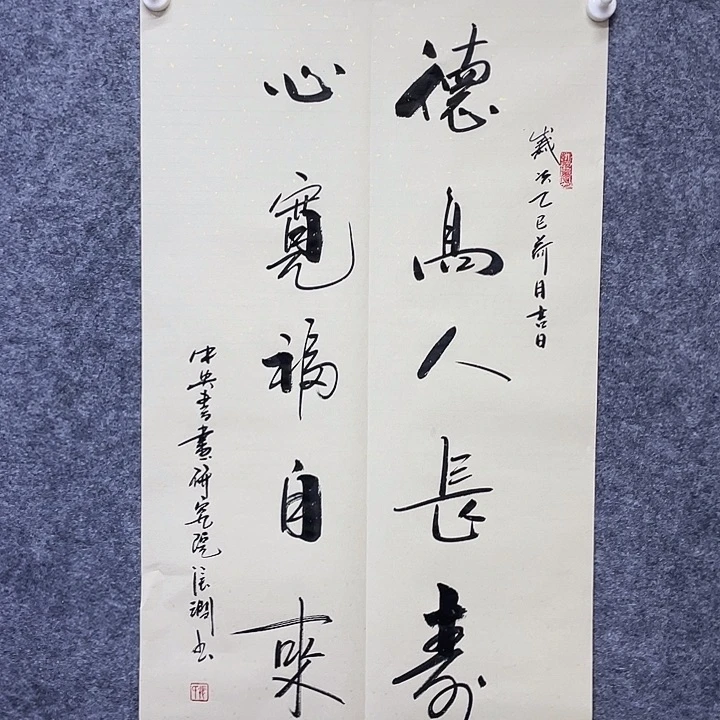 歲次乙巳荷月吉日
德高人長壽
心寬福自來
中央書畫研究院 書